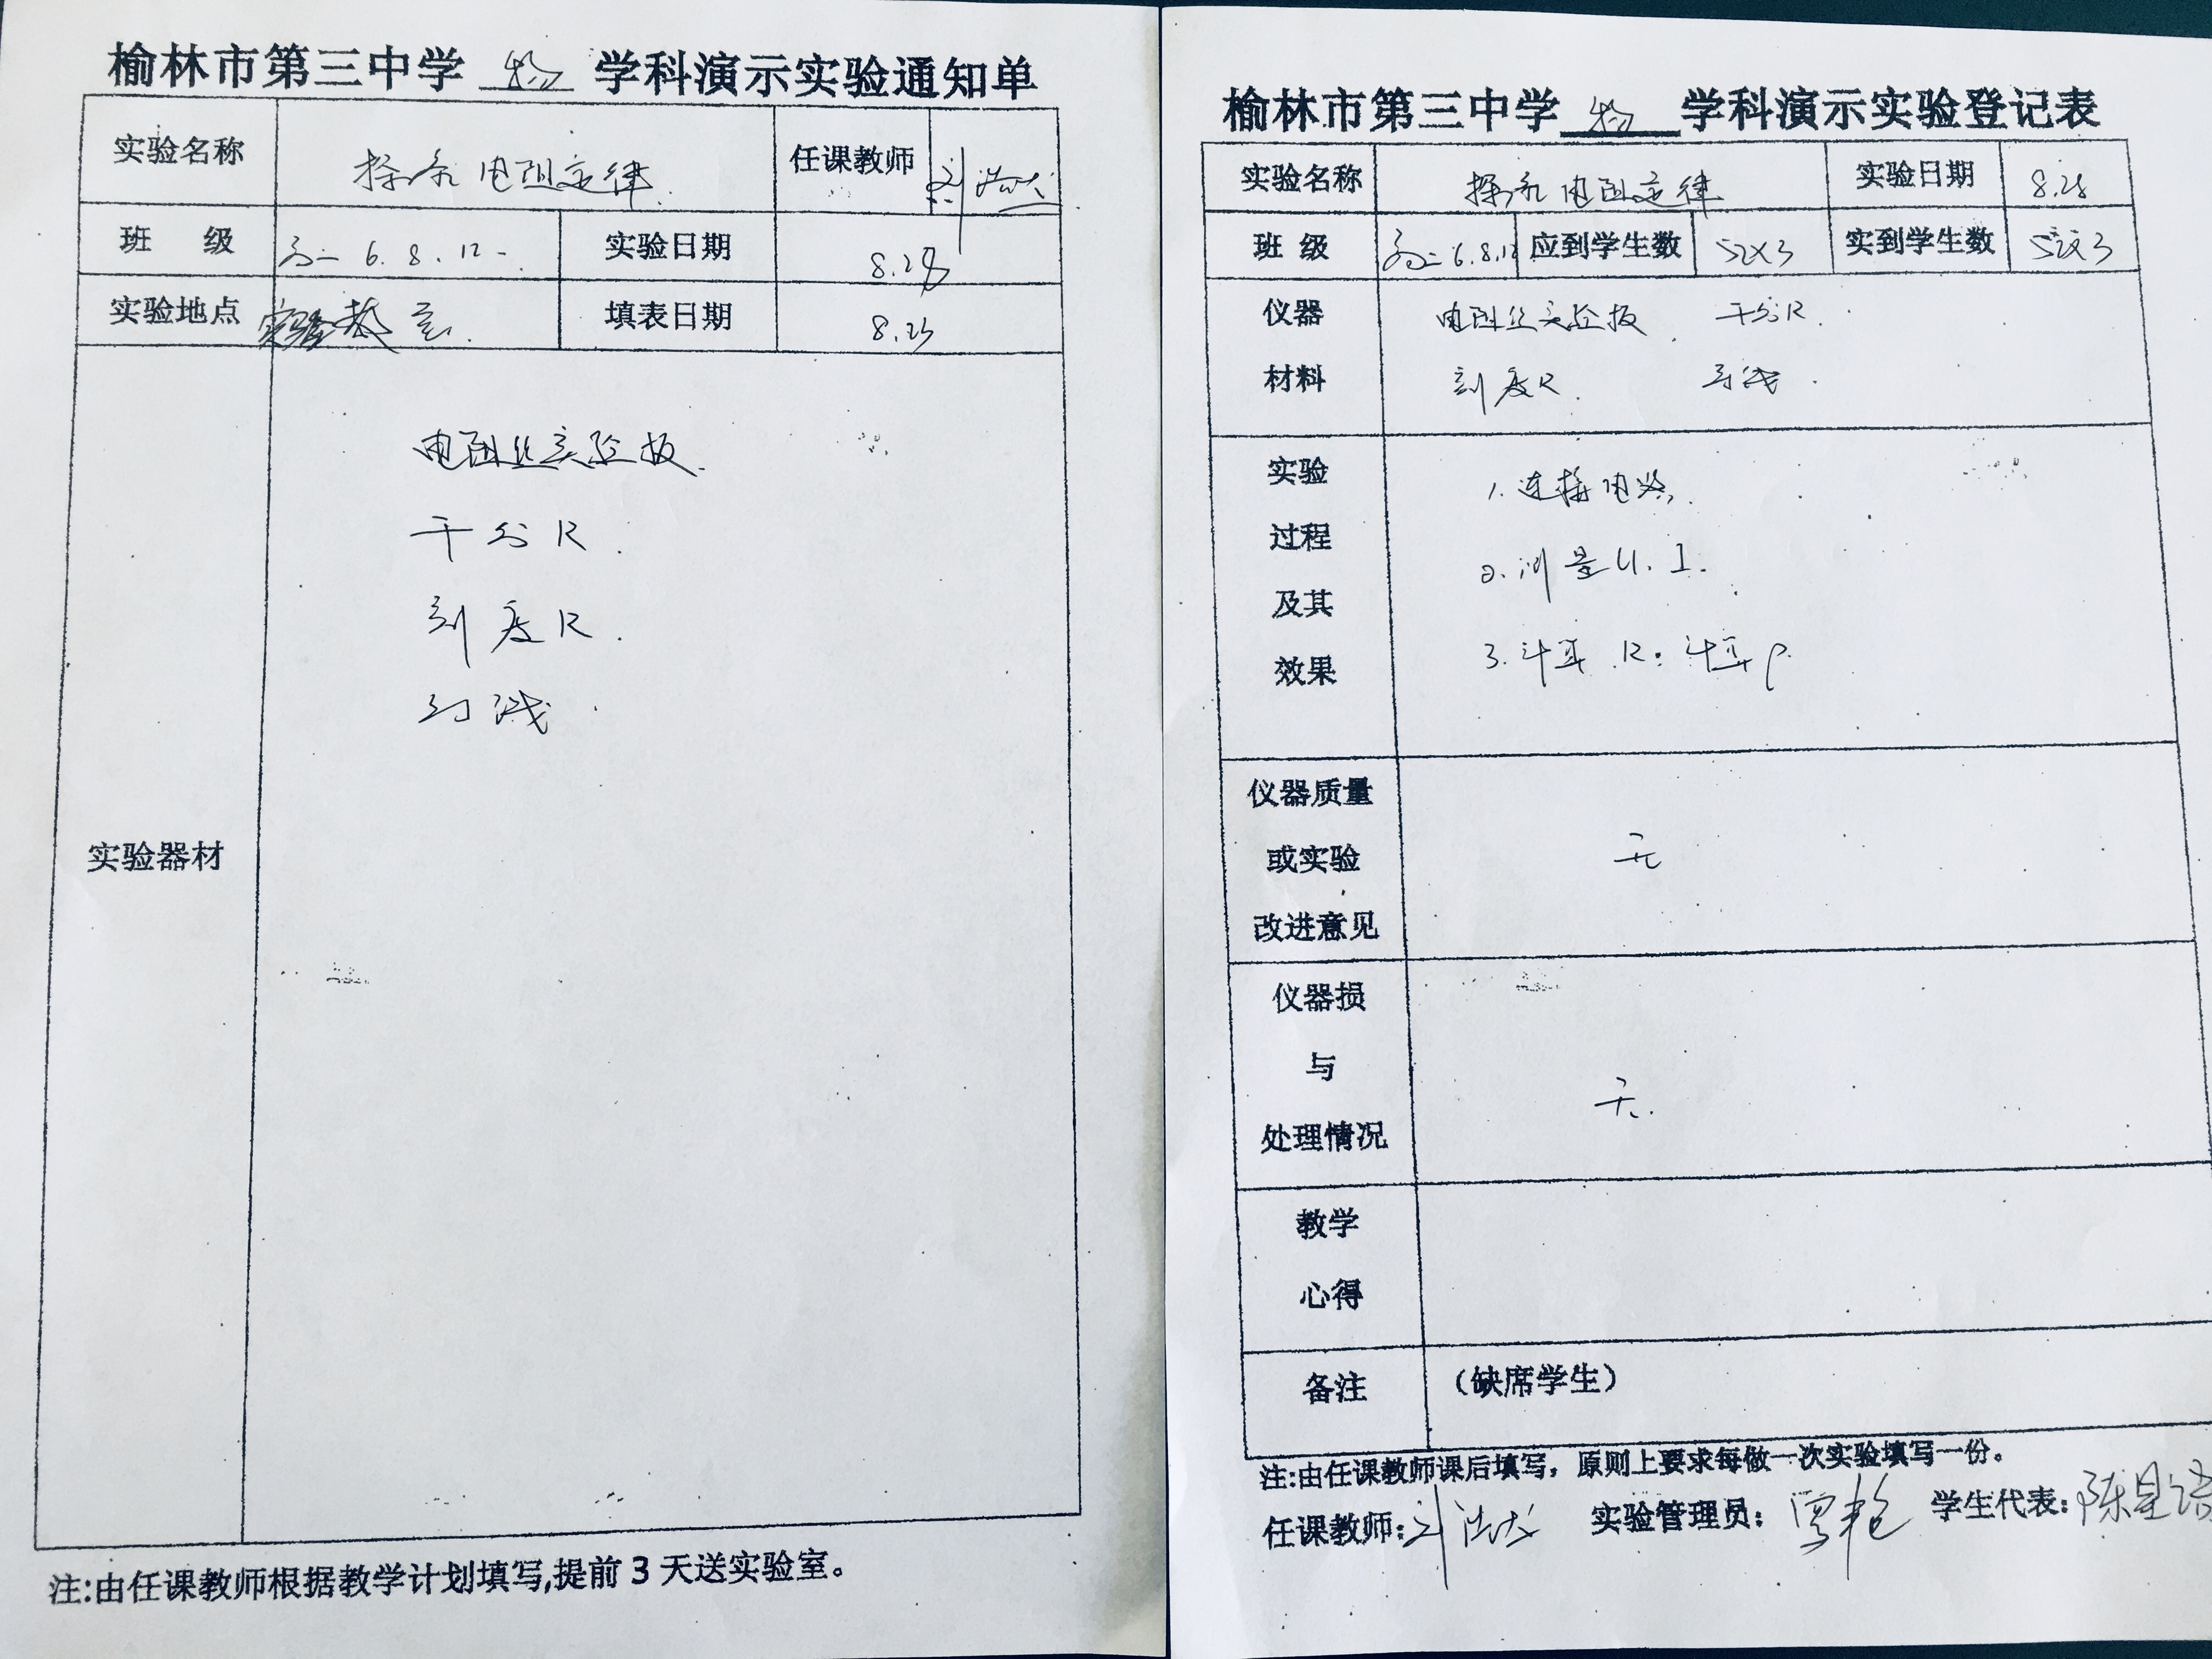 榆林市第三中学 物 学科演示实验通知单
实验名称 探究电阻定律. 任课教师 刘浩然
班 级 高二 6.8.12. 实验日期 8.28
实验地点 实验教室. 填表日期 8.25
实验器材
电阻丝实验板.
千分尺.
刻度尺.
导线.
注:由任课教师根据教学计划填写,提前3天送实验室。
榆林市第三中学 物 学科演示实验登记表
实验名称 探究电阻定律 实验日期 8.28
班 级 高二 6.8.12 应到学生数 52×3 实到学生数 52×3
仪器 材料
电阻丝实验板. 千分尺.
刻度尺. 导线.
实验 过程 及其 效果
1.连接电路.
2.测量U.I.
3.计算R.计算ρ.
仪器质量 或实验 改进意见
无
仪器损 与 处理情况
无.
教学 心得
备注 (缺席学生)
注:由任课教师课后填写，原则上要求每做一次实验填写一份。
任课教师: 实验管理员: 学生代表: